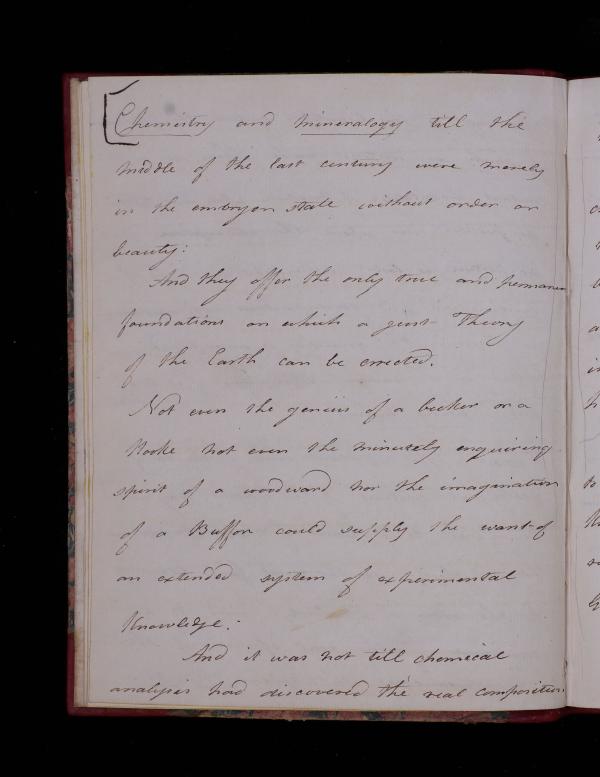 Chemistry and mineralogy till the
middle of the last century were merely
in the embryon state without order or
beauty:
And they offer the only true and permanen
foundations on which a just Theory
of the Earth can be erected.
Not even the genius of a becker or a
Hooke not even the minutely enquiring
spirit of a woodward nor the imagination
of a Buffon could supply the want of
an extended system of experimental
Knowledge.
And it was not till chemical
analysis had discovered the real composition